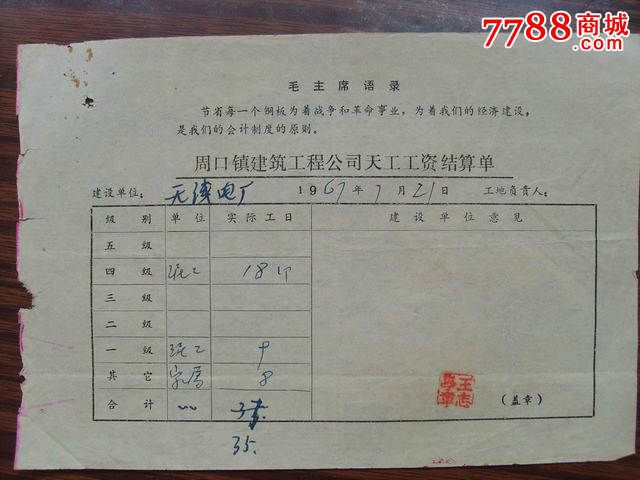 7788商城
.com
毛主席语录
节省每一个铜板为着战争和革命事业，为着我们的经济建设，
是我们的会计制度的原则。
周口镇建筑工程公司天工工资结算单
建设单位： 无线电厂 1967年7月21日 工地负责人：
级别 单位 实际工日 建设单位意见
五级
四级 18
三级
二级
一级
其它 家属 8
合计 35.
王志 (盖章)